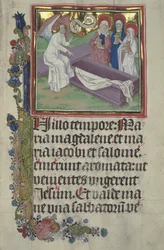 In illo tempore: Ma
ria magdalene et ma
ria iacobi et salome
emerunt aromata: ut
venientes ungerent
Jesum. Et valde ma
ne una sabbatorum ve